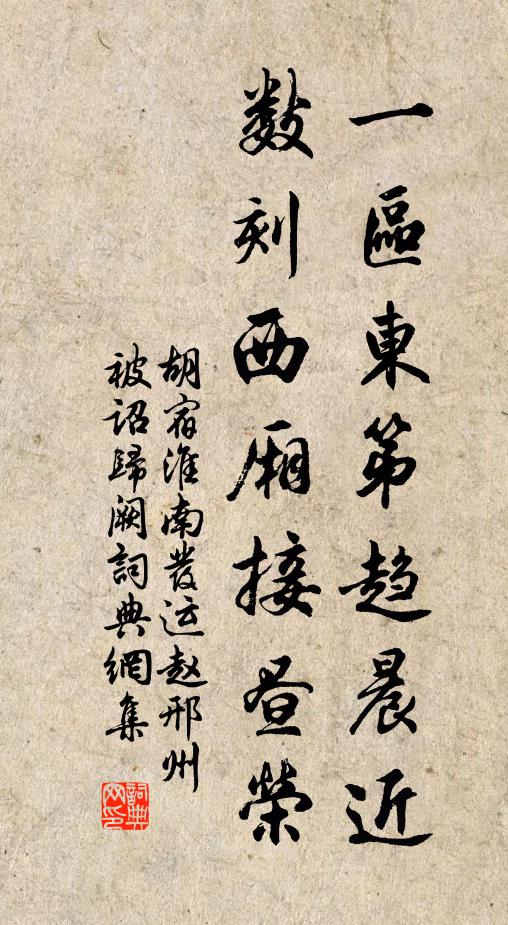 一區東第趨晨近
數刻西厢接昼榮
胡宿淮南發运赵邢州
被诏歸阙詞典網集
詞典網印